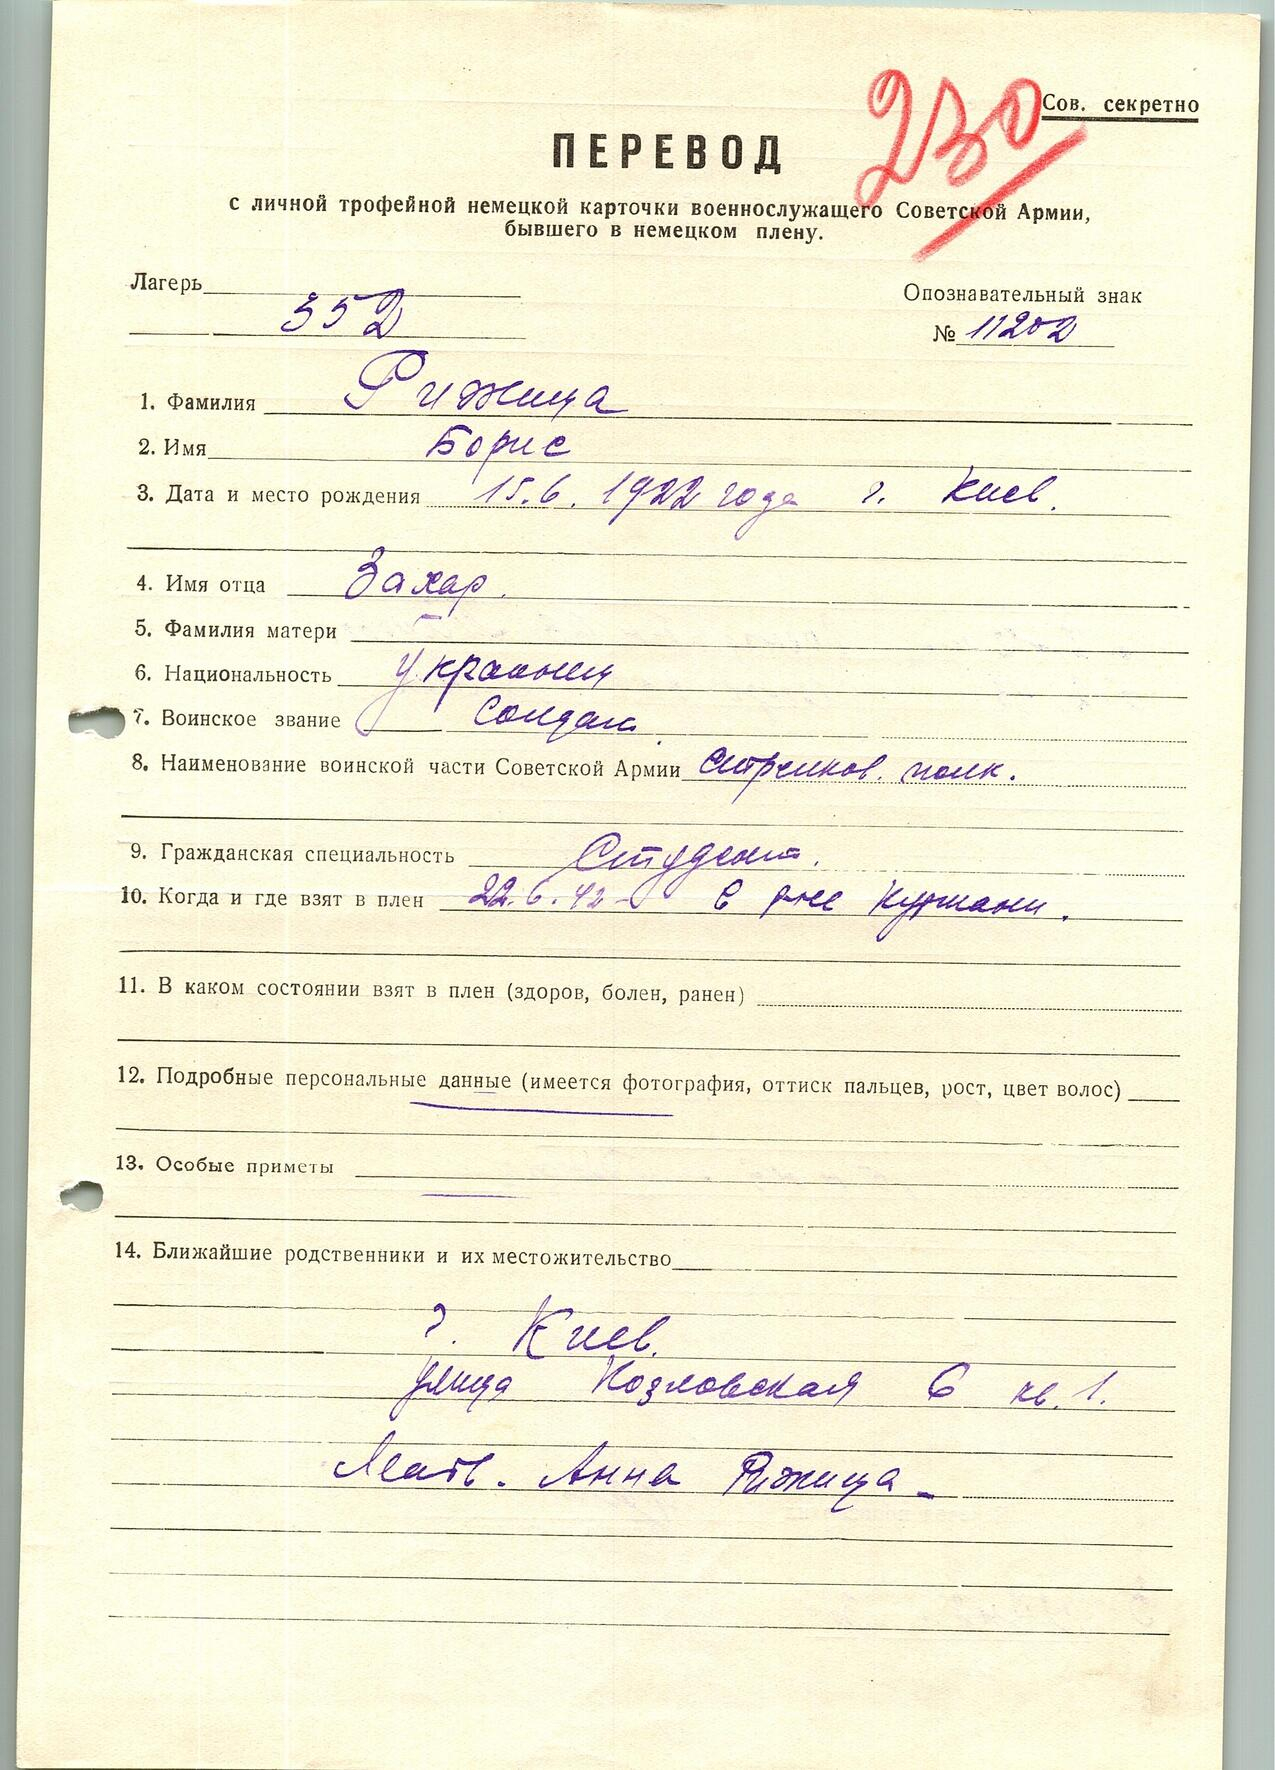 230
Сов. секретно
ПЕРЕВОД
с личной трофейной немецкой карточки военнослужащего Советской Армии,
бывшего в немецком плену.
Лагерь
35 D
Опознавательный знак
№ 11202
1. Фамилия Рижица
2. Имя Борис
3. Дата и место рождения 15.6.1922 года г. Киев.
4. Имя отца Захар.
5. Фамилия матери
6. Национальность Украинец
7. Воинское звание Солдат.
8. Наименование воинской части Советской Армии стрелков. полк.
9. Гражданская специальность Студент.
10. Когда и где взят в плен 22.6.42 - в
11. В каком состоянии взят в плен (здоров, болен, ранен)
12. Подробные персональные данные (имеется фотография, оттиск пальцев, рост, цвет волос)
13. Особые приметы
14. Ближайшие родственники и их местожительство
г. Киев.
улица Козловская 6 кв. 1.
Мать. Анна Рижица